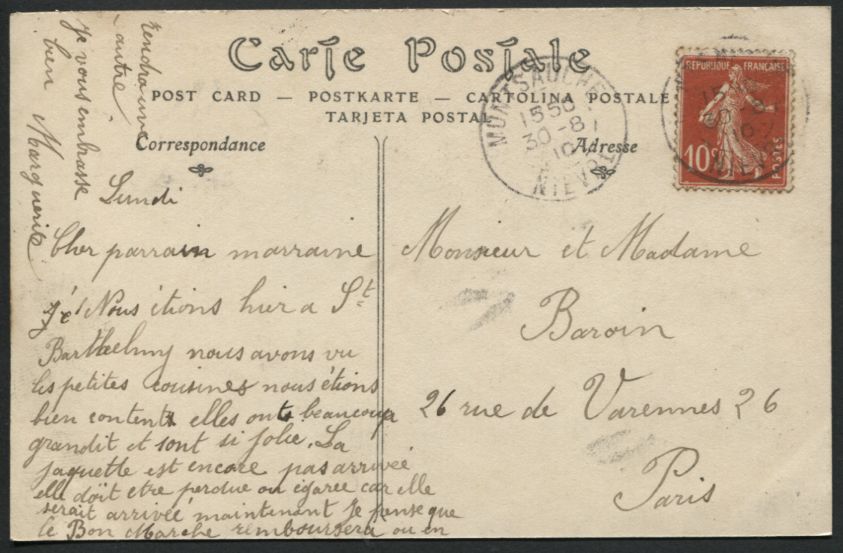 Carte Postale
POST CARD — POSTKARTE — CARTOLINA POSTALE
TARJETA POSTAL
Correspondance
Adresse
Lundi
Cher parrain marraine
Nous étions hier a St
Barthelmy nous avons vu
les petites cousines nous étions
bien content elles ont beaucoup
grandit et sont si jolie. La
jaquette est encore pas arrivée
elle doit etre perdue ou égaree car elle
serait arrivée maintenant je pense que
le Bon Marche remboursera ou en
rendra une
autre
Je vous embrasse
bien Marguerite
Monsieur et Madame
Baroin
26 rue de Varennes 26
Paris
MONTSAUCHE
15 50
30 -8
10
NIEVRE
REPUBLIQUE FRANÇAISE
10c
POSTES
15
30 -8
10